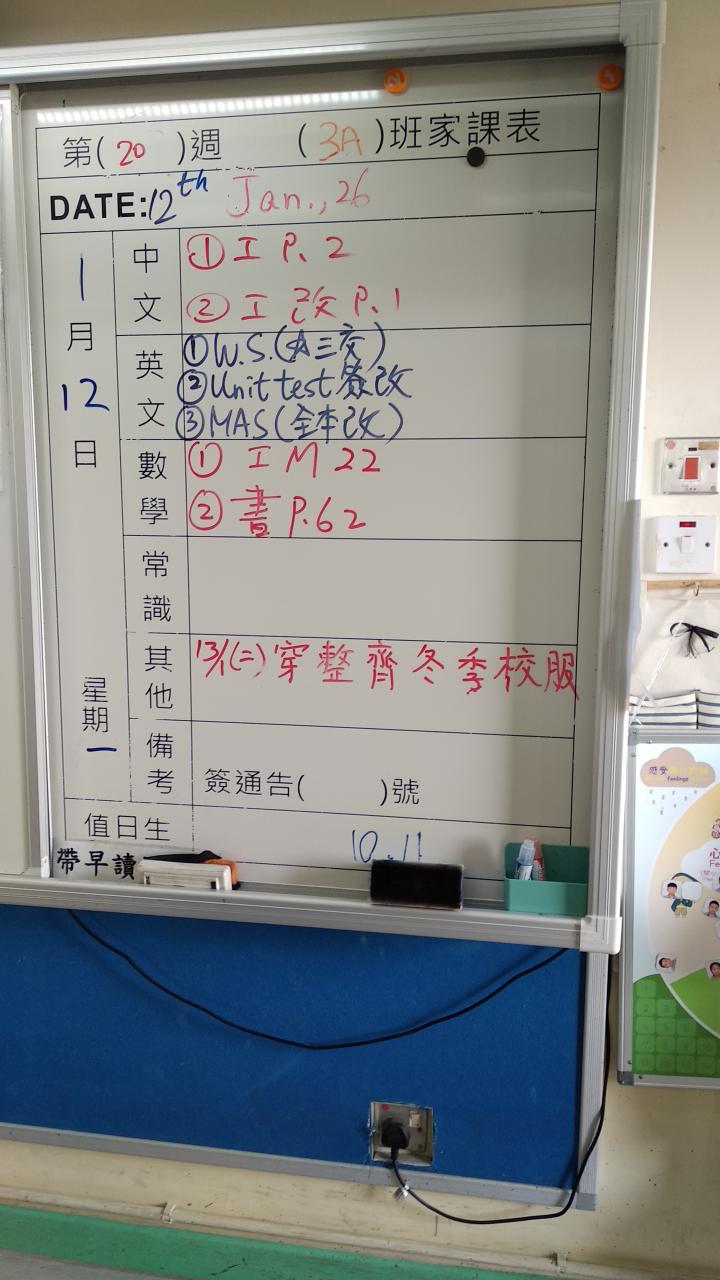 第(20)週 (3A)班家課表
DATE:12th Jan.,26
1月12日 星期一
中文
①工 P.2
②工改 P.1
英文
①W.S.(A三交)
②Unit test 簽改
③MAS(全本改)
數學
① 工 M22
② 書 P.62
常識
其他
13/1(二)穿整齊冬季校服
備考
簽通告( )號
值日生
10.11
帶早讀
感受
Feelings
心
Fe